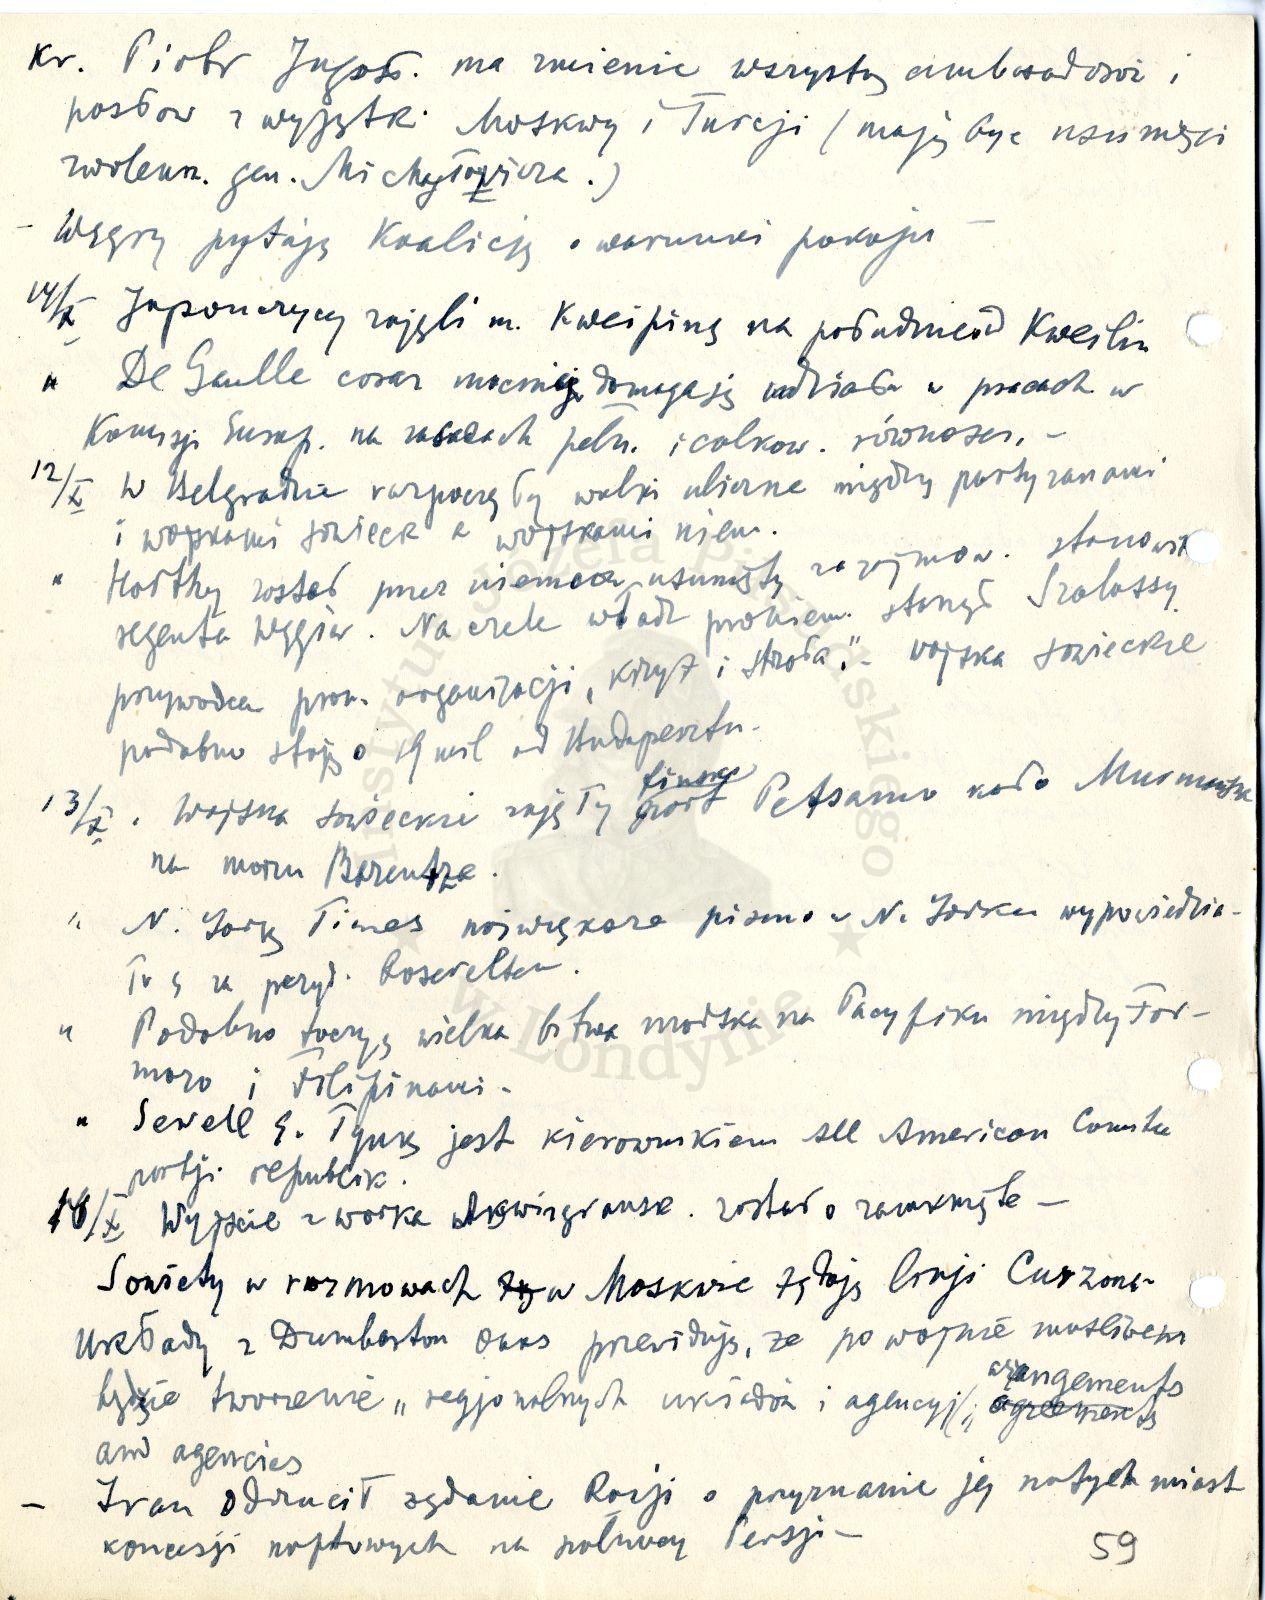 Kr. Piotr Jugosł. ma zmienić wszystkich ambasadorów i
posłów z wyjątk. Moskwy i Turcji (mają być usunięci
zwolenn. gen. Michajłowicza.)
- Węgry pytają Koalicję o warunki pokoju -
14/X Japończycy zajęli m. Kweiping na południe od Kweilin
" De Gaulle coraz mocniej domaga się udziału w pracach w
Komisji Europ. na zasadach pełn. i całkow. równości. -
12/X W Belgradzie rozpoczęły walki uliczne między partyzanami
i wojskami sowieck a wojskami niem.
" Horthy został przez niemców usunięty zajmow. stanowisk
regenta Węgier. Na czele władz proniem. stanął Szalassy
przywódca pron. organizacji "Krzyż i strzała". - wojska sowieckie
podobno stoją o 19 mil od Budapesztu.
13/X. Wojska sowieckie zajęły fiński port Petsamo koło Murmańska
na morzu Barentza.
" N. York Times największe pismo w N. Yorku wypowiedzia-
ło się za prezyd. Roseveltem.
" Podobno toczy się wielka bitwa morska na Pacyfiku między For-
mozo i Filipinami -
" Sewell G. Tyng jest kierownikiem All American Comitee
partji republik.
16/X Wyjście z worka Akwizgrańsk. zostało zamknięte -
Sowiety w rozmowach w Moskwie żądają linji Curzona -
Układy z Dumbarton Oaks przewidują, że po wojnie możliwem
będzie tworzenie "regjonalnych układów i agencyj (" arangements
agreements
and agencies
- Iran odrzucił żądanie Rosji o przyznanie jej natychmiast
koncesji naftowych na północy Persji -
59
Instytut Józefa Piłsudskiego
w Londynie